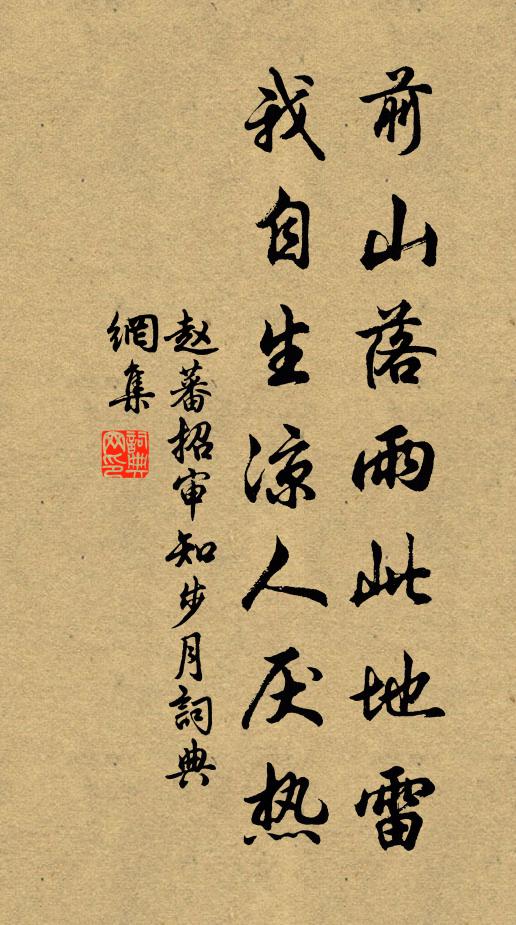 前山落雨此地雷
我自生涼人厌热
赵蕃招审知步月詞典
網集
詞典
网印